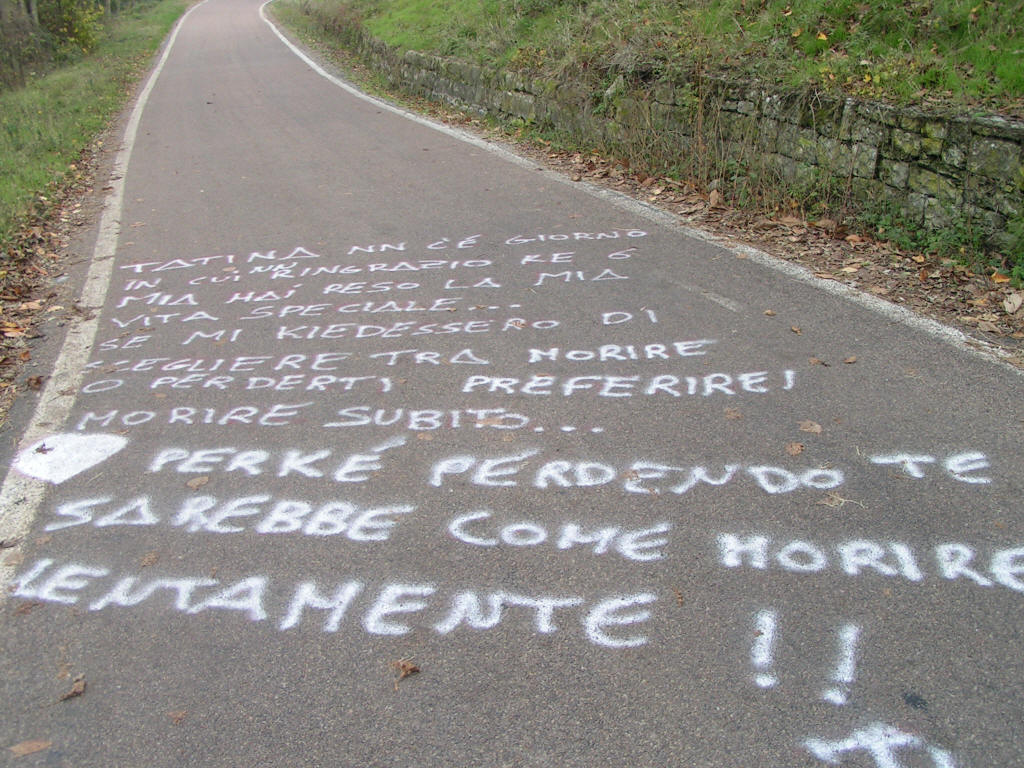 TATINA NN C'È GIORNO
IN CUI NN RINGRAZIO KE 6
MIA HAI RESO LA MIA
VITA SPECIALE...
SE MI KIEDESSERO DI
SCEGLIERE TRA MORIRE
O PERDERTI PREFERIREI
MORIRE SUBITO....
PERKÉ PERDENDO TE
SAREBBE COME MORIRE
LENTAMENTE !!